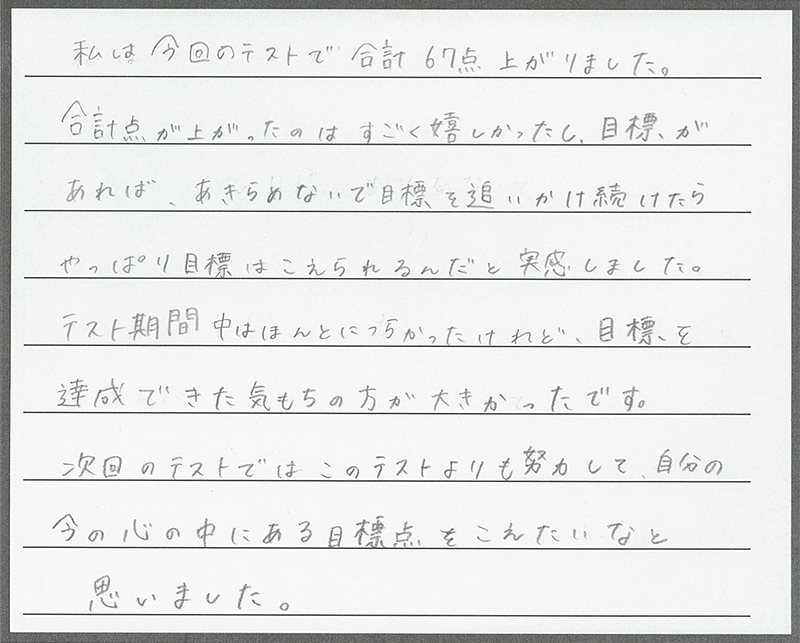 私は今回のテストで合計67点上がりました。
合計点が上がったのはすごく嬉しかったし、目標が
あれば、あきらめないで目標を追いかけ続けたら
やっぱり目標はこえられるんだと実感しました。
テスト期間中はほんとにつらかったけれど、目標を
達成できた気もちの方が大きかったです。
次回のテストではこのテストよりも努力して、自分の
今の心の中にある目標点をこえたいなと
思いました。